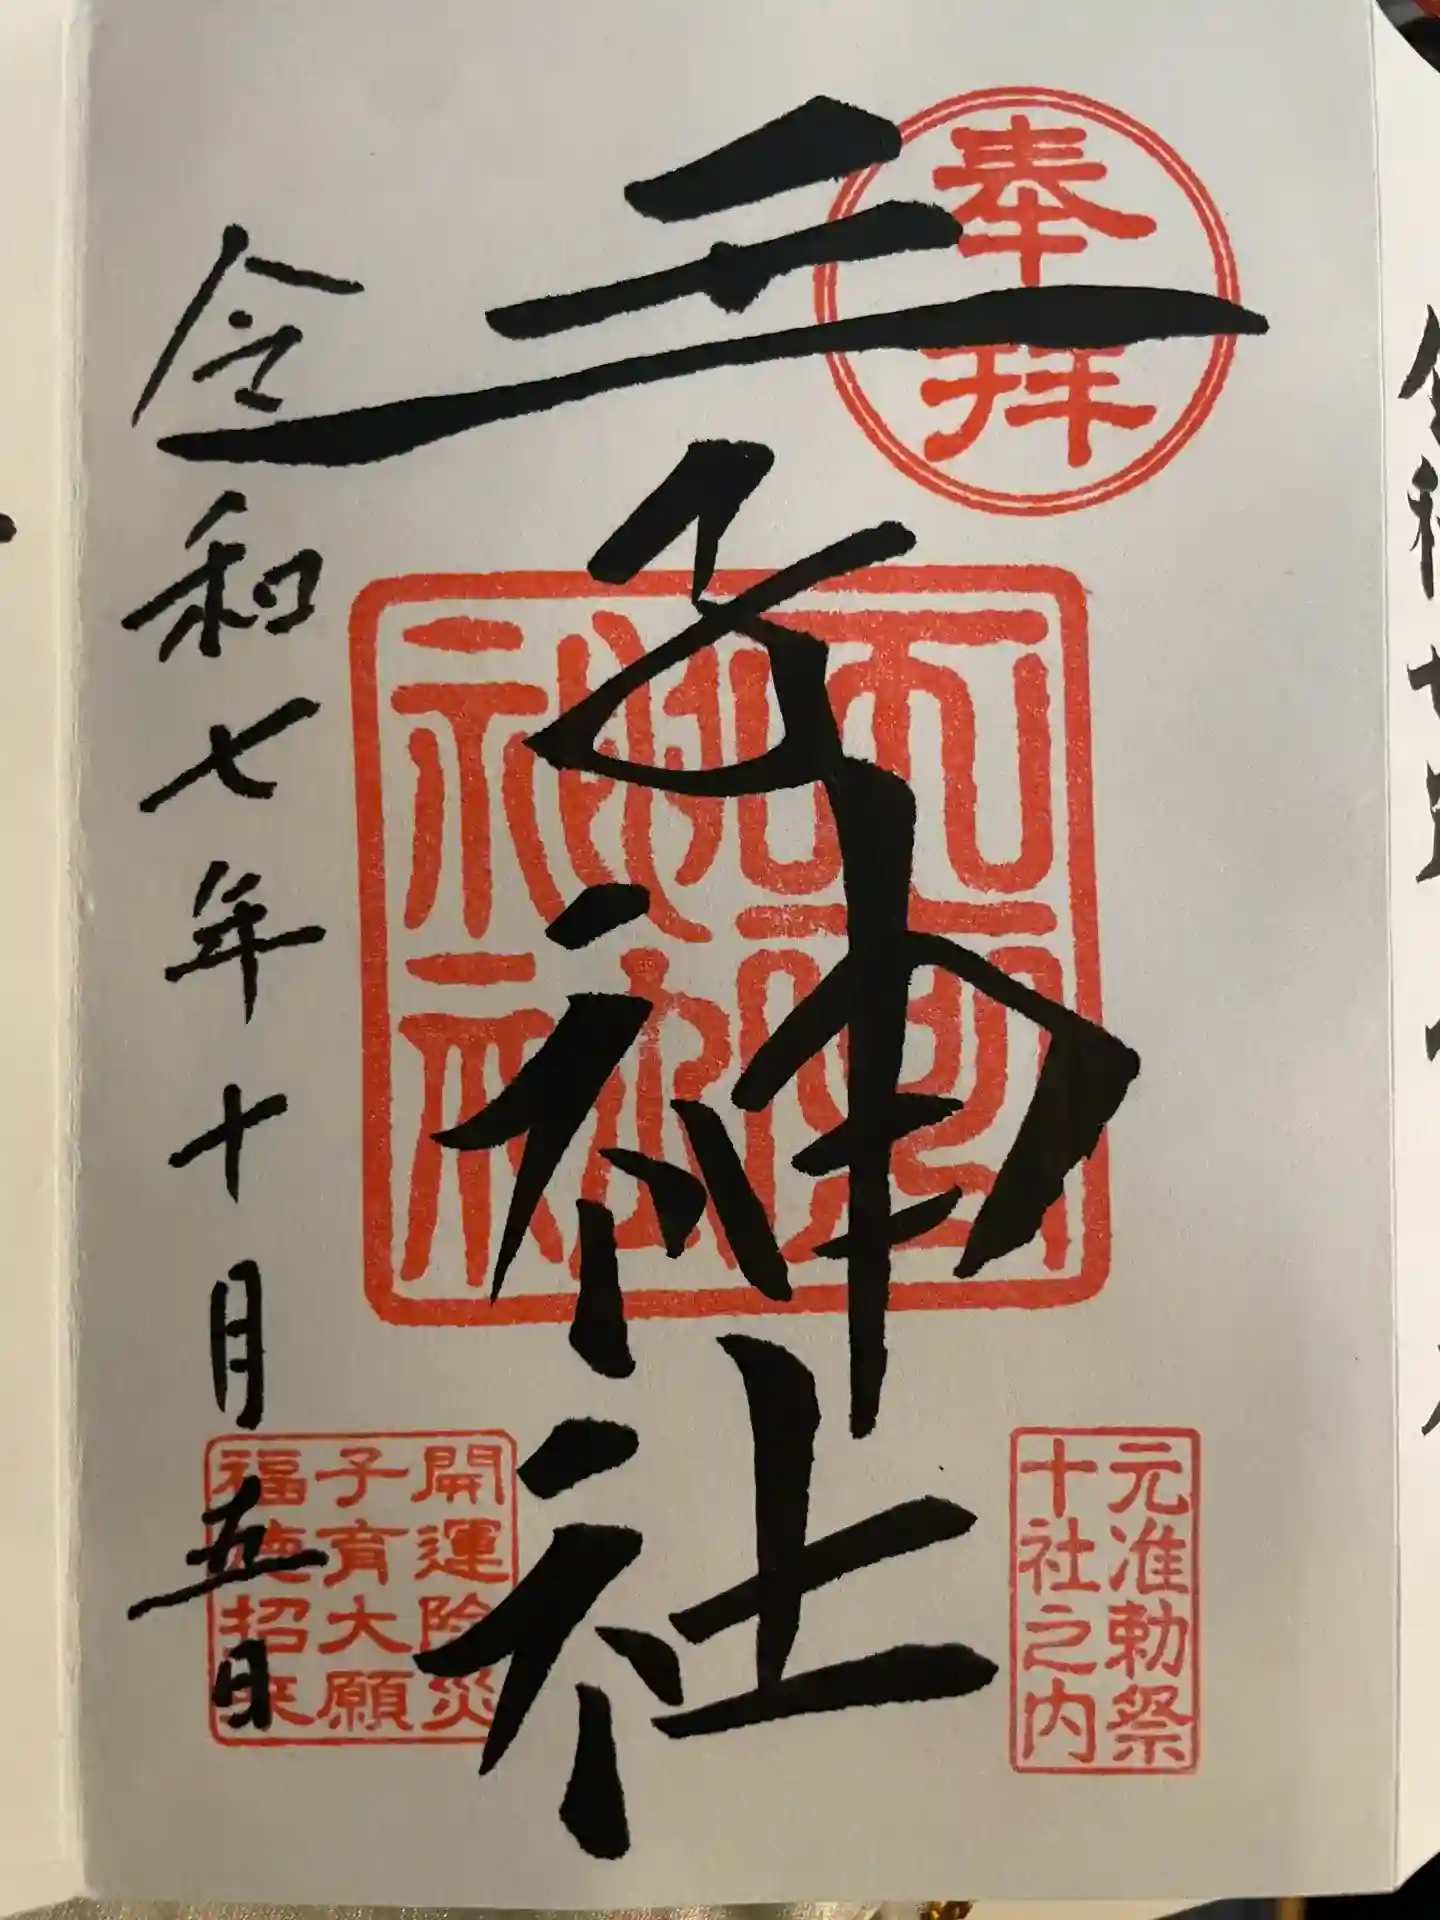 奉拝
王子神社
令和七年十月五日
元准勅祭
十社之内
開運除災
子育大願
福徳招来